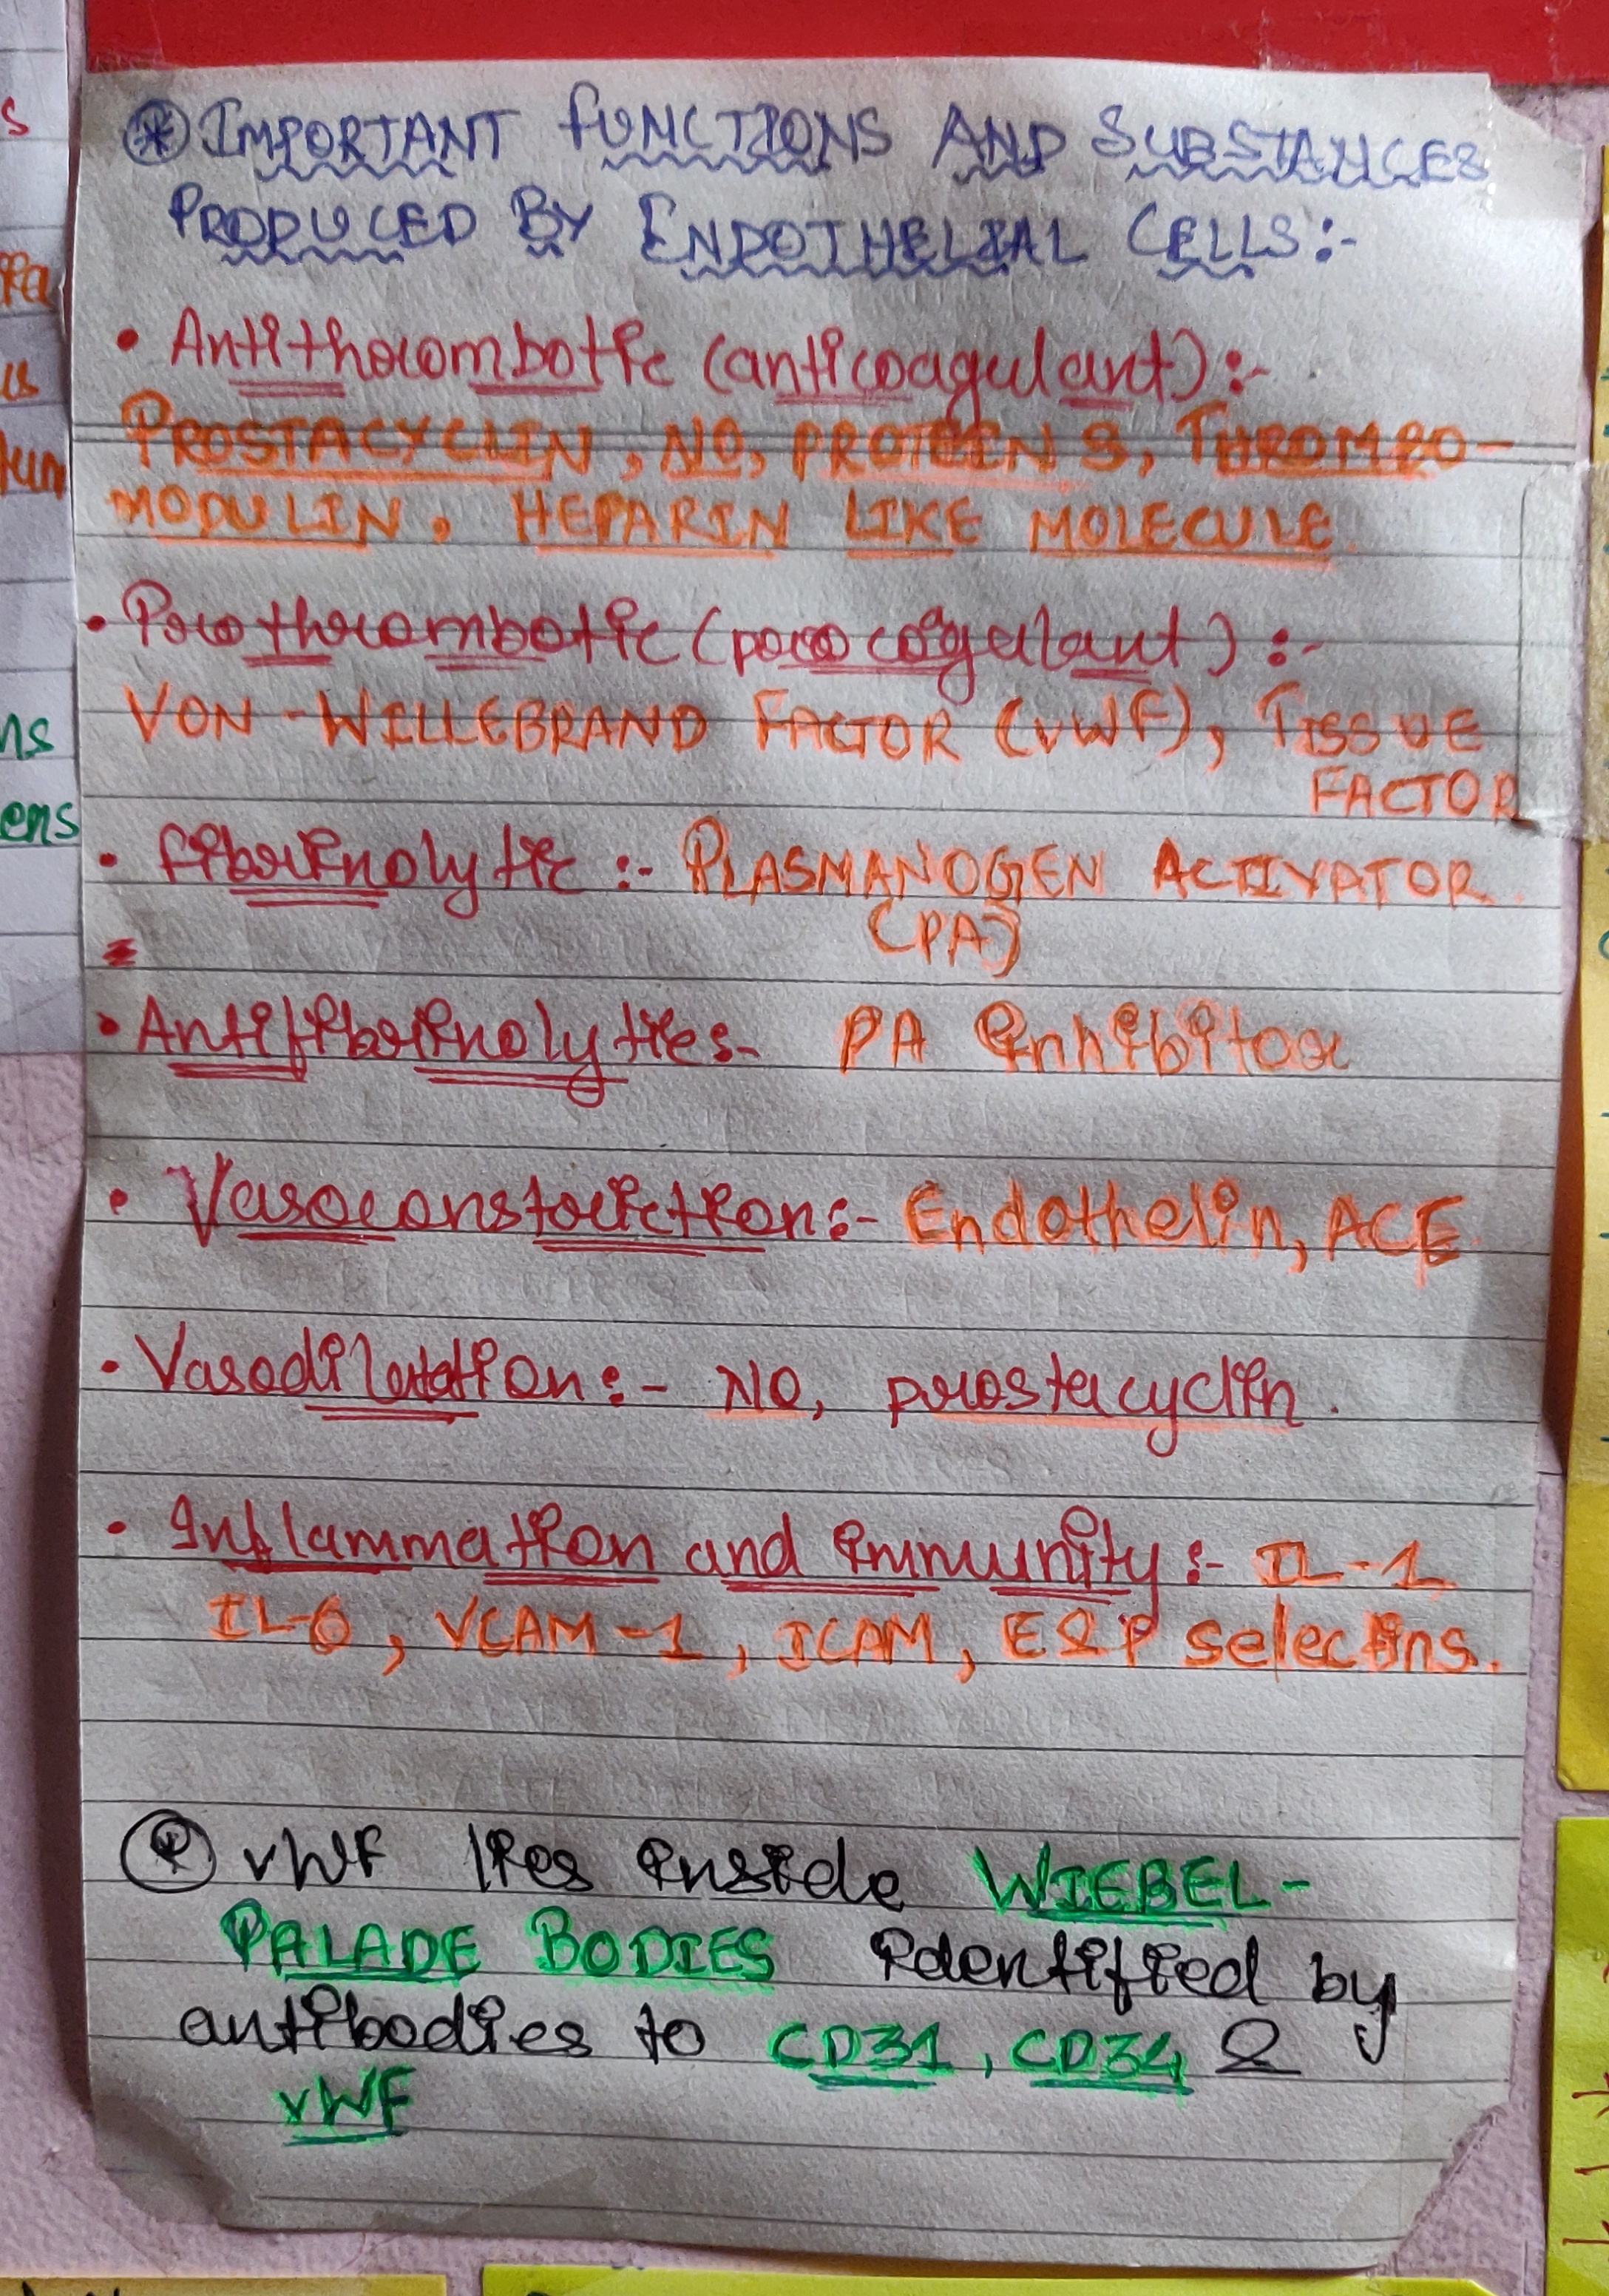 ⊛ IMPORTANT FUNCTIONS AND SUBSTANCES
PRODUCED BY ENDOTHELIAL CELLS:-
• Antithrombotic (anticoagulant):-
PROSTACYCLIN, NO, PROTEIN S, THROMBO-
MODULIN, HEPARIN LIKE MOLECULE.
• Prothrombotic (procoagulant) :-
VON-WILLEBRAND FACTOR (vWF), TISSUE
FACTOR
• Fibrinolytic :- PLASMANOGEN ACTIVATOR.
(PA)
• Antifibrinolytics- PA inhibitor
• Vasoconstriction:- Endothelin, ACE.
• Vasodilatation:- NO, prostacyclin.
• Inflammation and immunity:- IL-1
IL-6, VCAM-1, ICAM, E&P selectins.
vWF lies inside WIEBEL-
PALADE BODIES identified by
antibodies to CD31, CD34 &
vWF